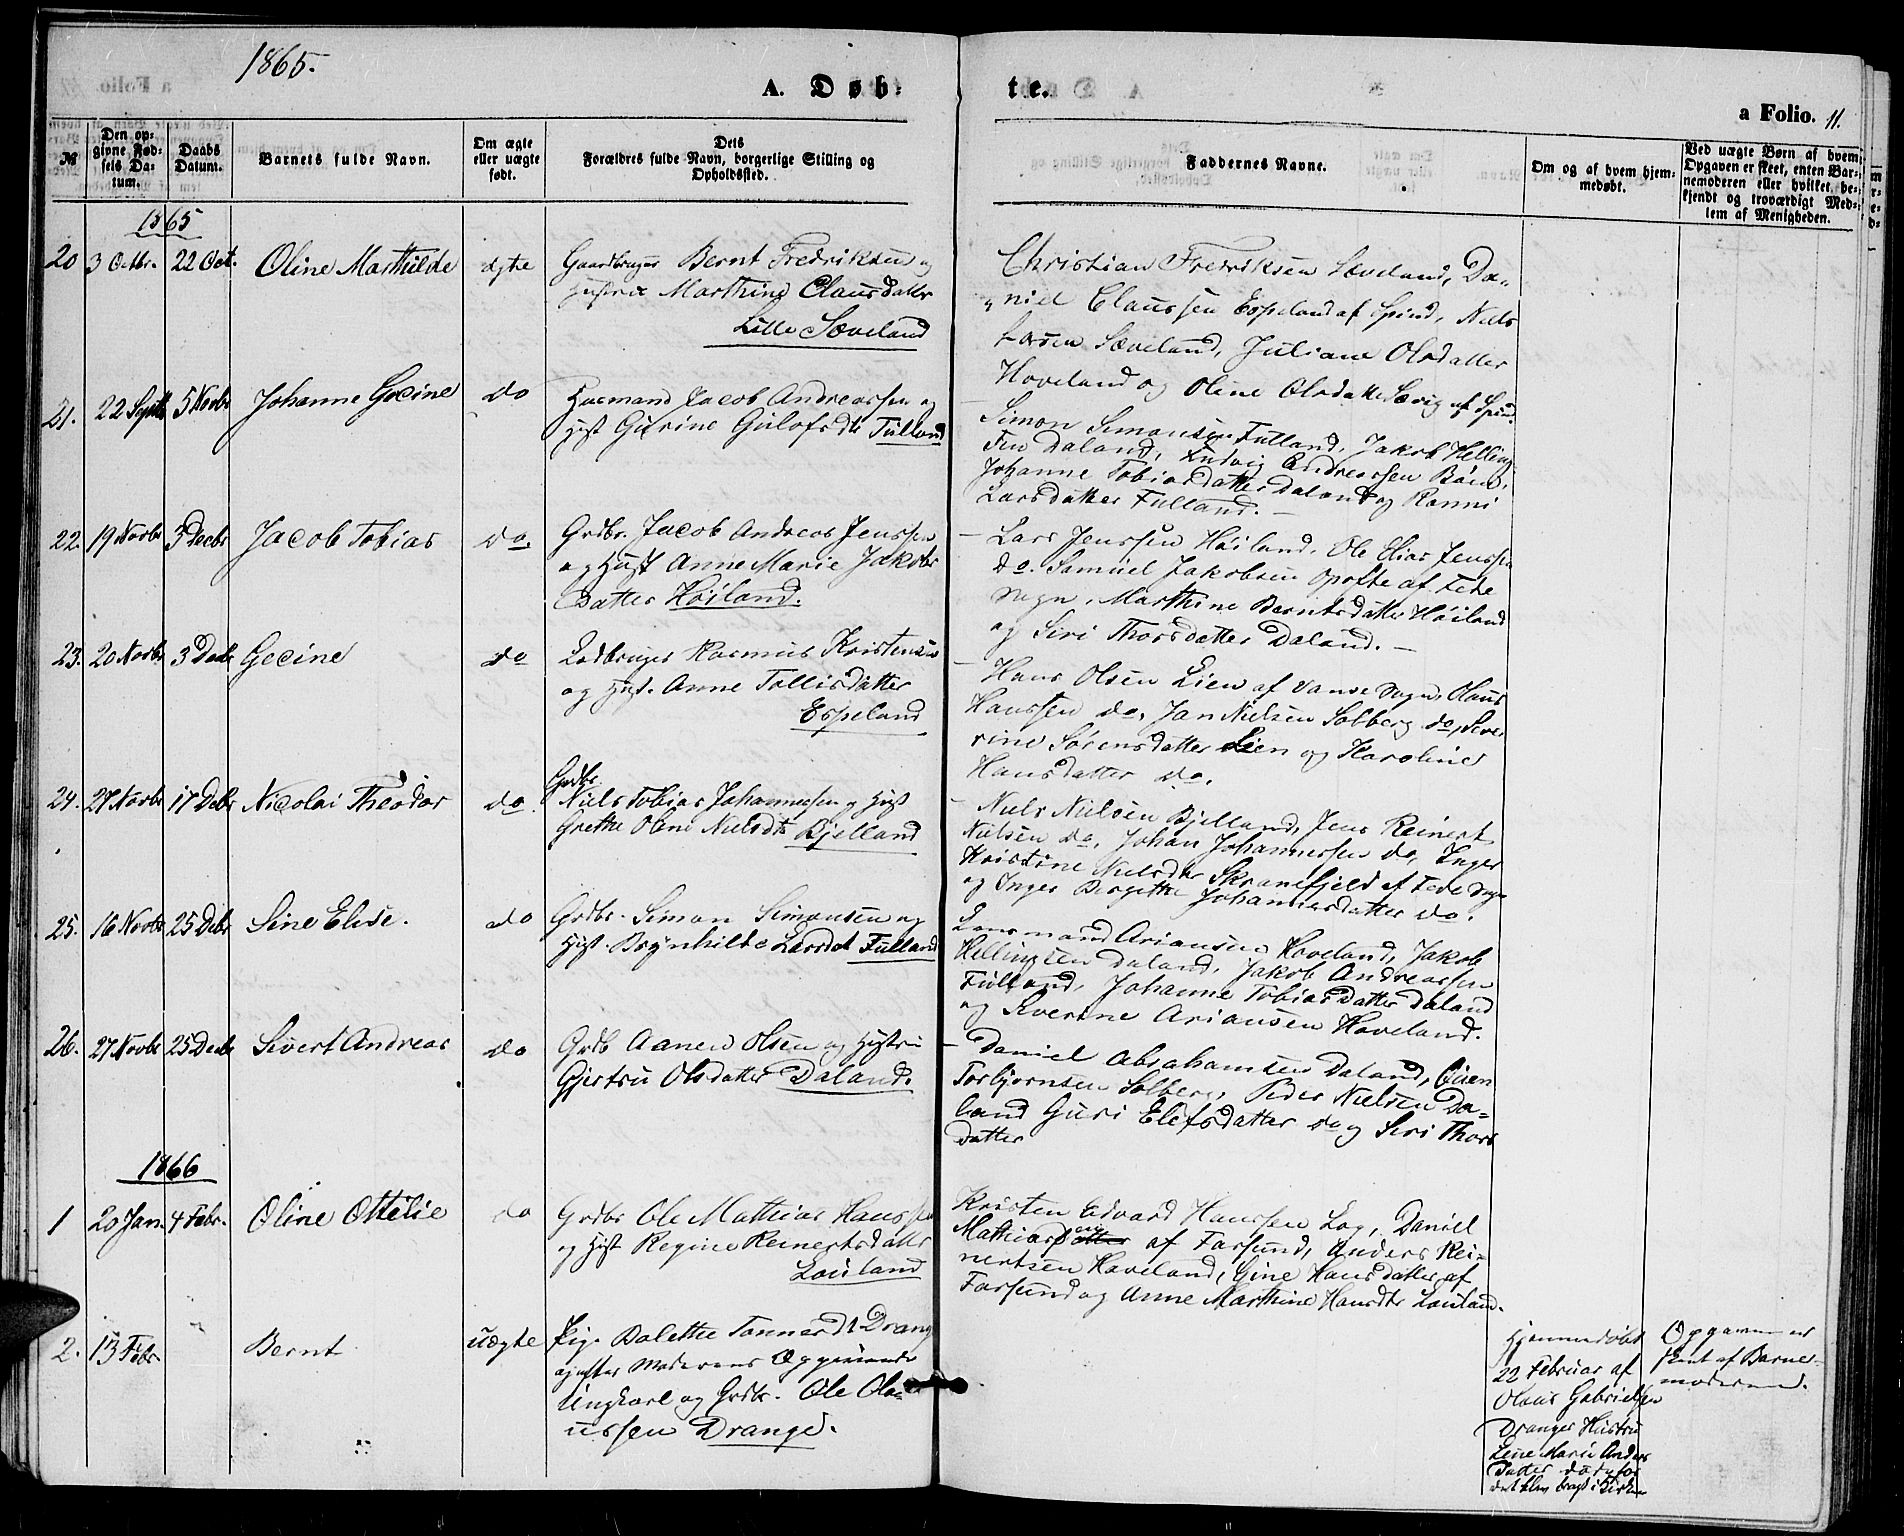 1865.
A. Døb-
te.
a Folio. 11.
№
Den op-
givne Fød-
sels Da-
tum.
Daabs
Datum.
Barnets fulde Navn.
Om ægte
eller uægte
født.
Dets
Forældres fulde Navn, borgerlige Stilling og
Opholdssted.
Faddernes Navne.
Om og af hvem hjem-
medøbt.
Ved uægte Børn af hvem
Opgaven er skeet, enten Bar-
nemoderen eller hvilket be-
kjendt og troværdigt Med-
lem af Menigheden.
1865
20 3 Octbr. 22 Oct. Oline Marthilde ægte
Gaardbruger Bernt Fredriksen og
Hustru Marthine Clausdatter
Lille Sæveland
Christian Fredriksen Sæveland, Da-
niel Claussen Espeland af Spind, Niels
Larsen Sæveland, Juliane Olsdatter
Hoveland og Oline Olsdatter Sævig af Spind.
21. 22 Septb 5 Novbr Johanne Gecine do
Husmand Jacob Andreassen og
Hust Gurine Gulofsdt Fulland
Simon Simonsen Fulland, Jakob Helling-
sen Daland, Ludvig Andreassen Bøue,
Johanne Tobiasdatter Daland og Ranni
Larsdatter Fulland.
22. 19 Novbr 3 Decbr Jacob Tobias do.
Grdbr. Jacob Andreas Jenssen
og Hust Anne Marie Jakobs
Datter Høiland.
Lars Jenssen Høiland, Ole Elias Jenssen
do. Samuel Jakobsen Opofte af Fede
Sogn, Marthine Berntsdatter Høiland
og Siri Thorsdatter Daland.
23. 20 Novbr 3 Decbr Gecine do
Ladbruger Rasmus Kristensen
og Hust. Anne Tollisdatter
Espeland
Hans Olsen Lien af Vanse Sogn, Olaus
Hanssen do, Jan Nielsen Solberg do, Seve-
rine Sørensdatter Lien og Karoline
Hansdatter do.
24. 27 Novbr 17 Debr Nicolai Theodor do
Grdbr.
Niels Tobias Johannessen og Hust
Grethe Oline Nielsdt Bjelland
Niels Nielsen Bjelland, Jens Reinert
Nielsen do, Johan Johannessen do, Inger
Kristine Nielsdtr Skranefjeld af Fede Sogn
og Inger Bergitte Johannesdatter do.
25. 16 Novbr 25 Debr Sine Elise. do
Grdbr. Simon Simonsen og
Hust. Brynhilde Larsdt Fulland
Lensmand Ariansen Hoveland, Jakob
Hellingsen Daland, Jakob Andreassen
Fulland, Johanne Tobiasdatter Daland
og Severine Ariansen Hoveland.
26. 27 Novbr 25 Decbr Sivert Andreas do
Grdb Aanen Olsen og Hustru
Gjertru Olsdatter Daland.
Daniel Abrahamsen Daland,
Torbjørnsen Solberg, Peder Nielsen Da-
land Guri Elefsdatter do og Siri Thors
datter
1866
1 20 Jan. 4 Febr. Oline Ottelie do
Grdbr Ole Mathias Hanssen
og Hust Regine Reinertsdatter
Louland
Kristen Edvard Hanssen Log, Daniel
Mathiassen af Farsund, Anders Rei-
nertsen Hoveland, Gine Hansdatter af
Farsund og Anne Marthine Hansdtr Louland.
2. 13 Febr Bernt uægte
Pige Bolette Tønnesdt Drange
og efter Moderens Opgivende
Ungkarl og Grdbr. Ole Ola-
ussen Drange.
Hjemmedøbt
22 Februar af
Olaus Gabrielsen
Dranges Hustru
Lene Marie Anders
Datter døde før
det blev bragt i Kirken
Opgaven er
skeet af Barne-
moderen.